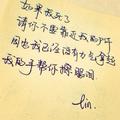 如果我死了
请你不要靠近我的尸体
因为我已经没有力气拿起
我的手帮你擦眼泪
lin.